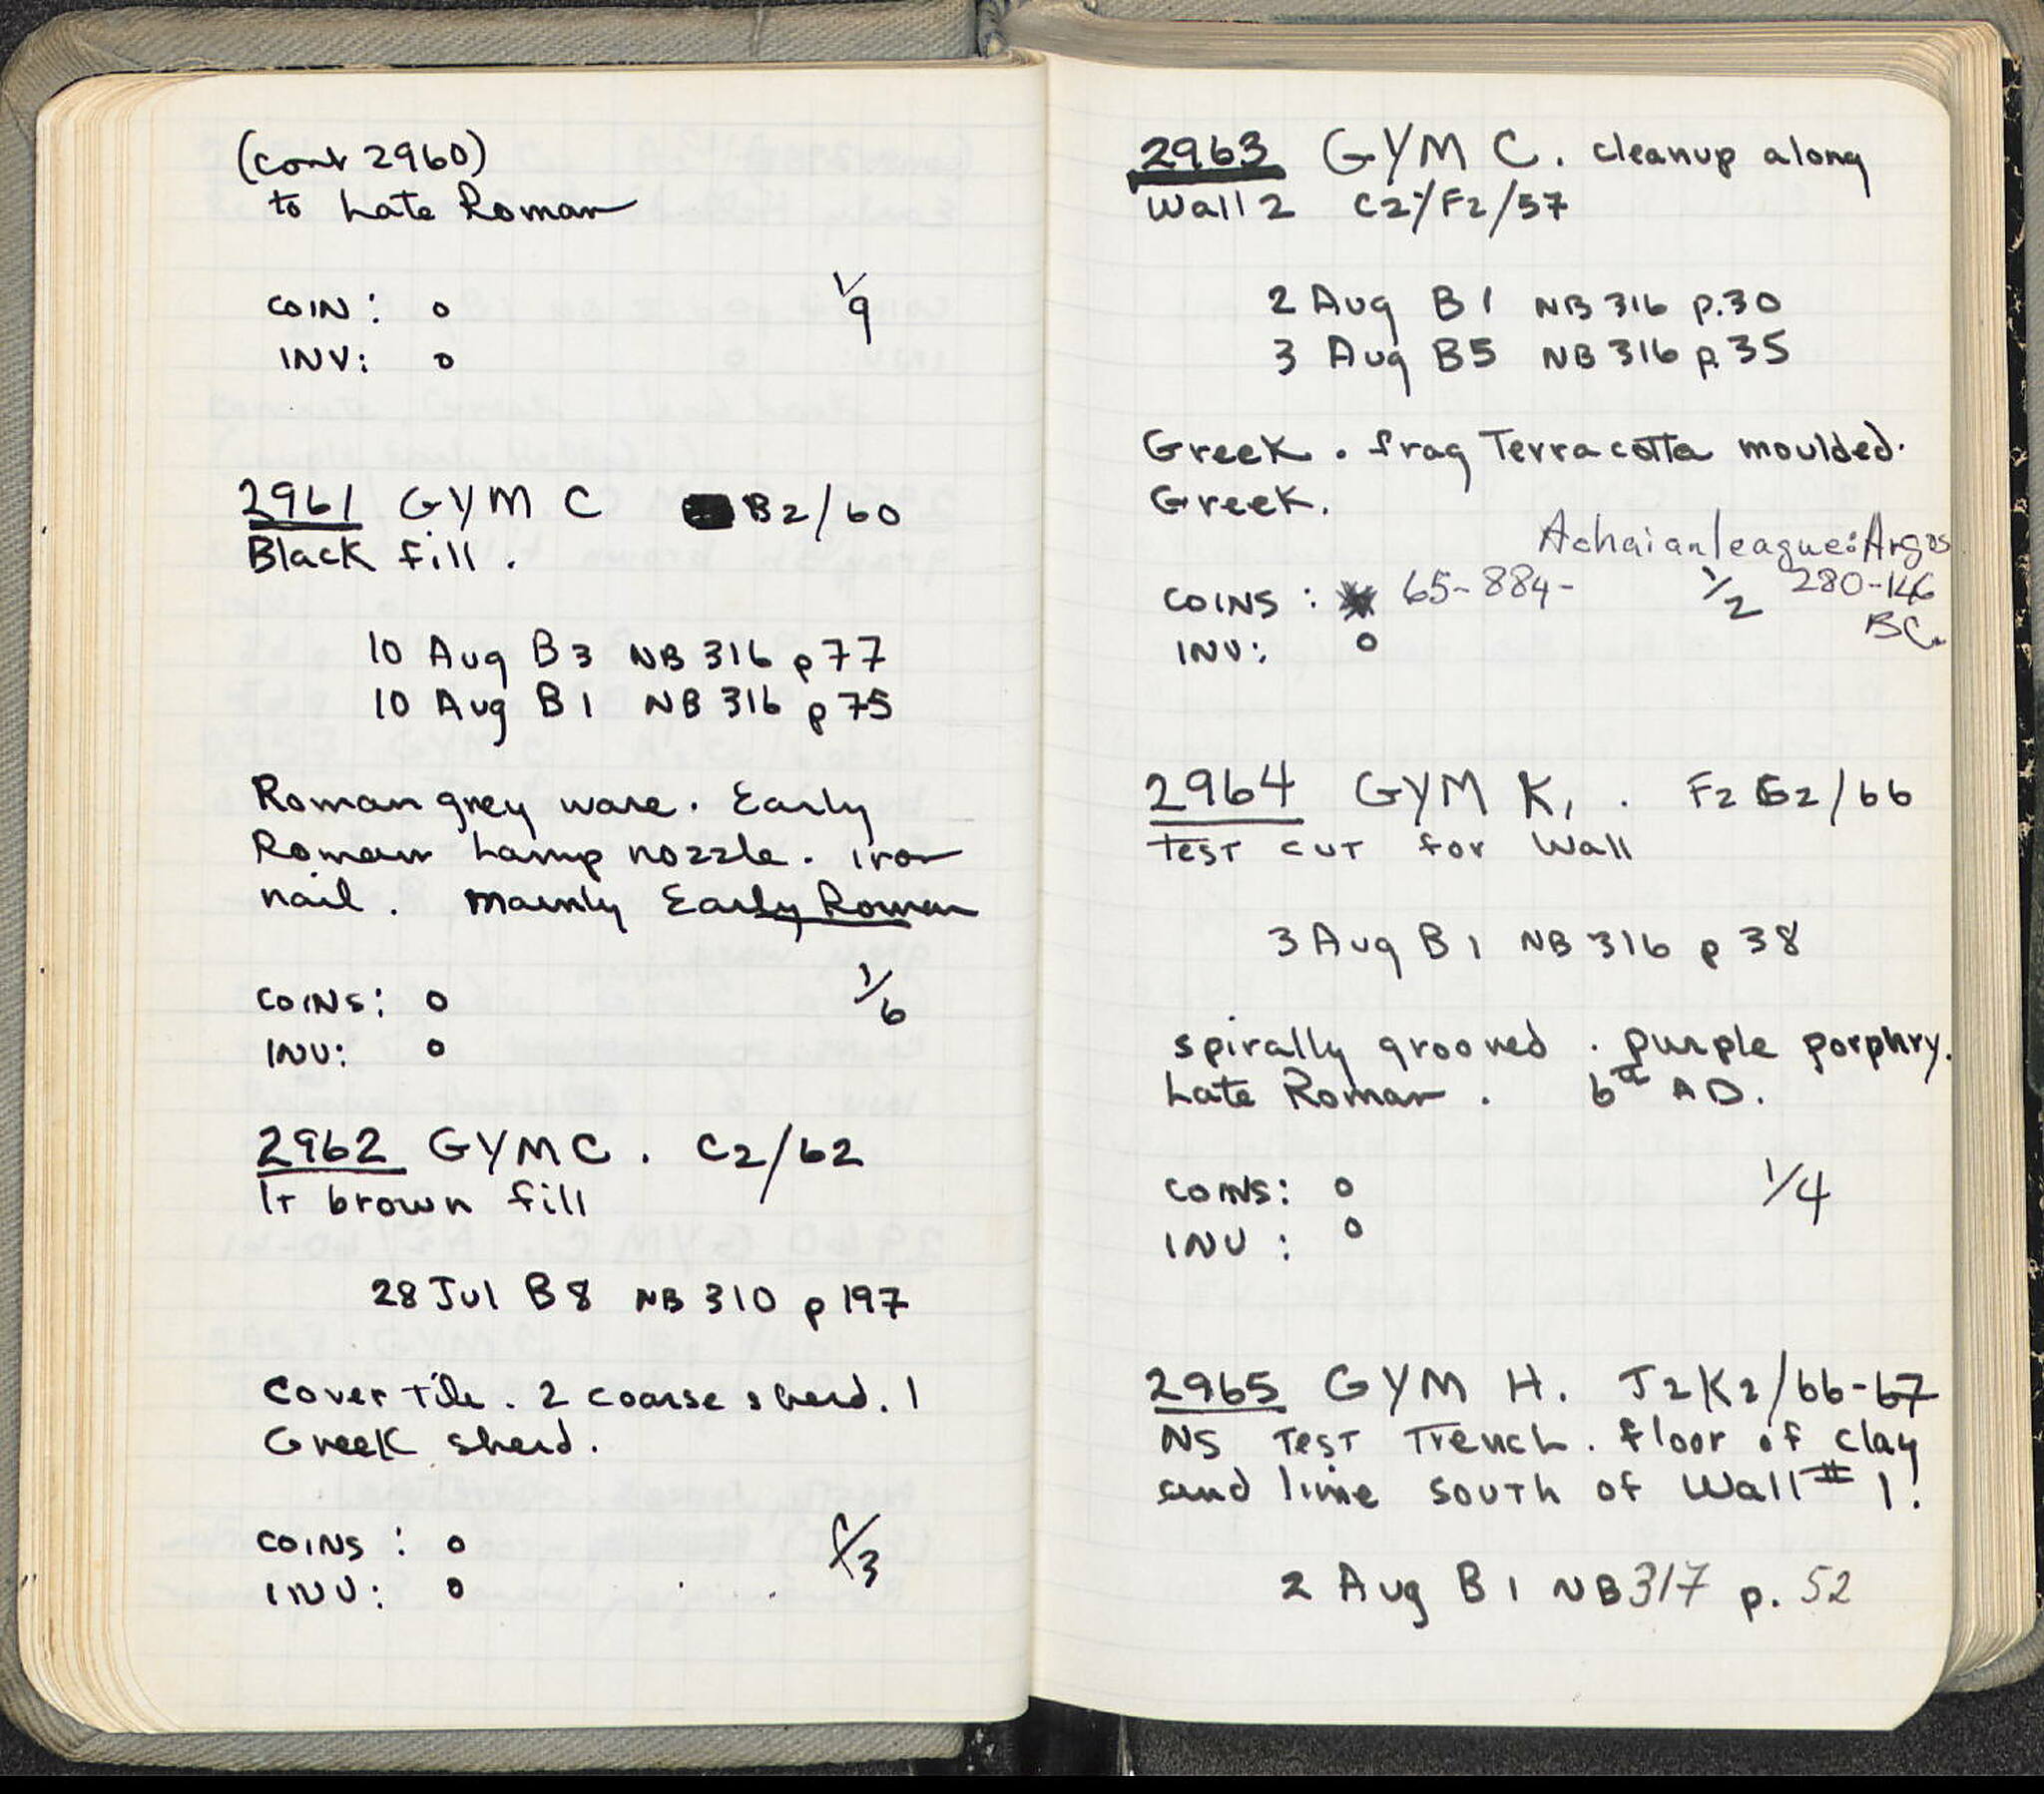 (cont 2960)
to Late Roman
COIN: 0 1/9
INV: 0
2961 GYM C B2/60
Black fill.
10 Aug B3 NB 316 p 77
10 Aug B1 NB 316 p 75
Roman grey ware. Early
Roman Lamp nozzle. iron
nail. mainly Early Roman
COINS: 0 1/6
INV: 0
2962 GYM C. C2/62
lt brown fill
28 Jul B8 NB 310 p 197
Cover tile. 2 coarse sherd. 1
Greek sherd.
COINS: 0 /3
INV: 0
2963 GYM C. cleanup along
Wall 2 C2/F2/57
2 Aug B1 NB 316 p.30
3 Aug B5 NB 316 p.35
Greek. frag Terracotta moulded.
Greek.
Achaian league: Argos
COINS: 65-884- 1/2 280-146
BC.
INV: 0
2964 GYM K, . F2 G2/66
test cut for Wall
3 Aug B1 NB 316 p 38
spirally grooved. purple porphry.
Late Roman. 6th AD.
COINS: 0 1/4
INV: 0
2965 GYM H. J2K2/66-67
NS Test Trench. floor of clay
and lime south of Wall # 1!
2 Aug B1 NB 317 p. 52